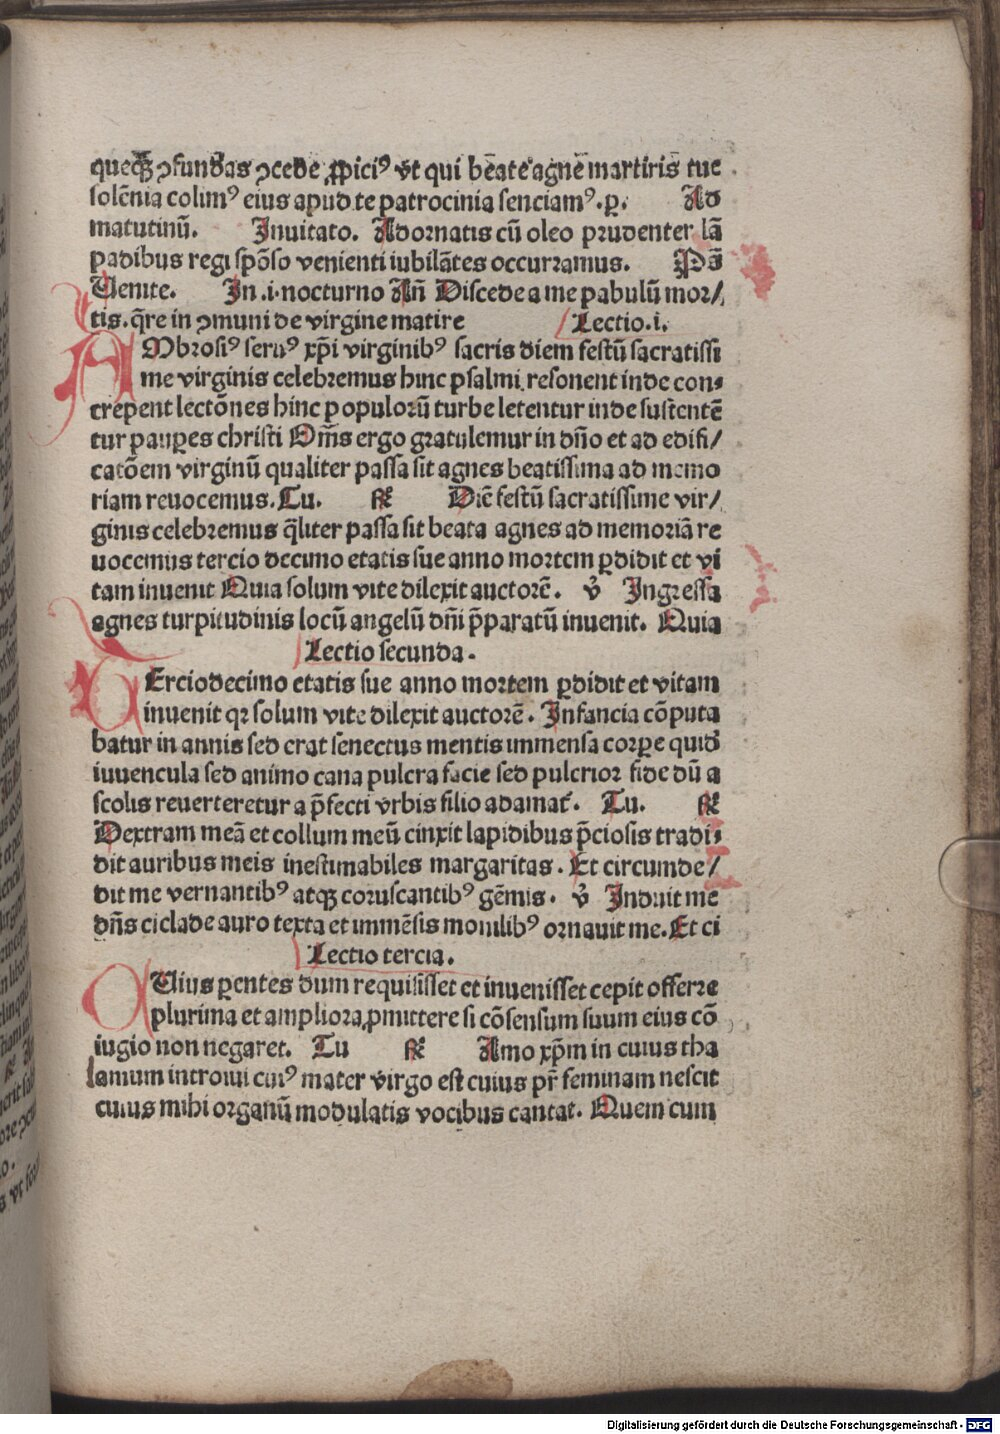 queqꝫ ↄfundas ↄcede ꝓpiciꝰ vt qui bēate agnē martiris̄ tue
solēnia colimꝰ eius apud te patrocinia senciamꝰ. ꝑ. Ad
matutinū. Inuitato. Adornatis cū oleo prudenter lā
padibus regi spōso venienti iubilātes occurramus. Ps̄
Uenite. In .i. nocturno Añ Discede a me pabulū mor/
tis. q̄re in ↄmuni de virgine matire Lectio .i.
AMbrosiꝰ seruꝰ xp̄i virginibꝰ sacris diem festū sacratissi
me virginis celebremus hinc psalmi resonent inde con⸗
crepent lectōnes hinc populorū turbe letentur inde sustentē
tur pauꝑes christi Om̄s ergo gratulemur in dn̄o et ad edifi/
catōem virginū qualiter passa sit agnes beatissima ad memo
riam reuocemus. Tu. ℟ Diē festū sacratissime vir/
ginis celebremus q̄liter passa sit beata agnes ad memoriā re
uocemus tercio decimo etatis sue anno mortem ꝑdidit et vi
tam inuenit Quia solum vite dilexit auctorē. v̄ Ingressa
agnes turpitudinis locū angelū dn̄i p̄paratū inuenit. Quia
Lectio secunda.
TErciodecimo etatis sue anno mortem ꝑdidit et vitam
inuenit qꝛ solum vite dilexit auctorē. Infancia cōputa
batur in annis sed erat senectus mentis immensa corꝑe quid
iuuencula sed animo cana pulcra facie sed pulcrior fide dū a
scolis reuerteretur a p̄fecti vrbis filio adamat̄. Tu. ℟
Dextram meā et collum meū cinxit lapidibus p̄ciosis tradi⸗
dit auribus meis inestimabiles margaritas. Et circumde/
dit me vernantibꝰ atqꝫ coruscantibꝰ gēmis. v̄ Induit me
dn̄s ciclade auro texta et immēsis monilibꝰ ornauit me. Et ci
Lectio tercia.
CUius ꝑentes dum requisisset et inuenisset cepit offerre
plurima et ampliora ꝓmittere si cōsensum suum eius cō
iugio non negaret. Tu ℟ Amo xp̄m in cuius tha
lamum introiui cuiꝰ mater virgo est cuius pr̄ feminam nescit
cuius mihi organū modulatis vocibus cantat. Quem cum
Digitalisierung gefördert durch die Deutsche Forschungsgemeinschaft - DFG